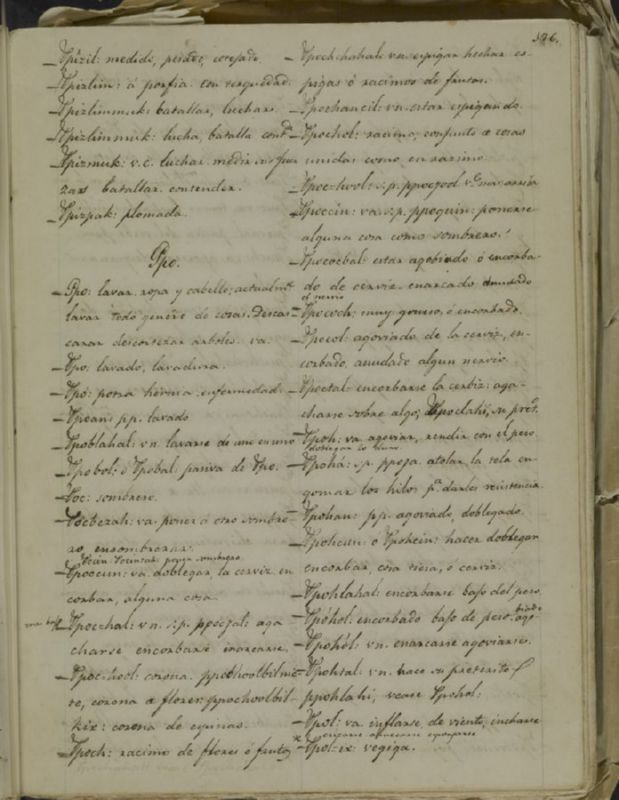 326.
Ppizil: medido, pesado, cotejado.
Ppizlim: á porfia. con terquedad.
Ppizlimmuk: batallar, luchar.
Ppizlimmuk: lucha, batalla cont.ª
Ppizmuk: v.c. luchar. medir sus fuer
zas batallar. contender.
Ppizpak: plomada.
Ppo.
Ppo: lavar. ropa y cabello; actualm.te
lavar todo genero de cosas. Descas
carar descortezar arboles. va.
Ppo. lavado, lavadura.
Ppo: potra hernia enfermedad.
Ppoan: pp. lavado
Ppoblahal: vn. lavarse de uno en uno
Ppobol: ó Ppobal: pasiva de Ppo.
Ppoc: sombrero.
Ppocbezah: va. poner á otro sombre
ro, ensombrerar.
poner sombrero
Ppoccun: va. doblegar, la cerviz en
corbar, alguna cosa.
Ppoczhal: vn. s.p. ppoczal: aga
charse encorbarse inarcarse.
Ppoc-hool: corona. ppochoolbilnic
te, corona de flores: ppochoolbil
kix: corona de espinas.
Ppoch: racimo de flores ó frutas
Ppochchahal: vn. espigar hechar es
pigas ó racimos de frutas.
Ppochancil: vn. estar espigando.
Ppochol: racimo, conjunto de cosas
unidas como en racimo
Ppoc-hool: s.p. ppocpool
Ppoccin: va. s.p. ppoquin: ponerse
alguna cosa como sombrero.
Ppococbal: estar agobiado ó encorba
do de cerviz. enarcado anudado
el nervio
Ppococh: muy grueso, ó encorbado.
Ppocol: agoviado de la cerviz, en
corbado, anudado algun nervio.
Ppoctal: encorbarse la cerbiz: aga
charse sobre algo; Ppoclahi, su pret.
Ppoh: va. agoviar, rendir con el peso.
doblegar lo duro
Ppohá: s.p. ppoja. atolar la tela en
gomar los hilos p.ª darles resistencia.
Ppohan: pp. agoviado, doblegado.
Ppohcun: ó Ppohcin: hacer doblegar
encorbar, cosa recia, ó cerviz.
Ppohlahal: encorbarse bajo del peso.
Ppohol: encorbado bajo de peso. ago
biado
Ppohól: vn. enarcarse agoviarse.
Ppohtal: vn. hace su preterito
ppohlahi, vease Ppohol:
Ppol: va. inflarse de viento, incharse
Ppol-ix: vegiga.